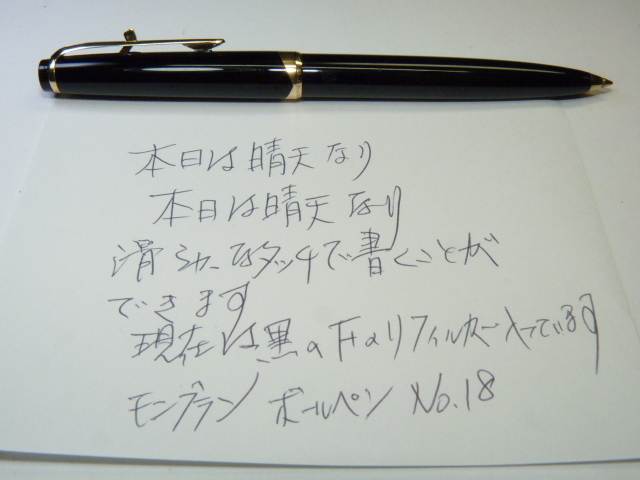 本日は晴天なり
本日は晴天なり
滑らかなタッチで書くことが
できます
現在は黒のFのリフィルが入っています
モンブラン ボールペン No.18